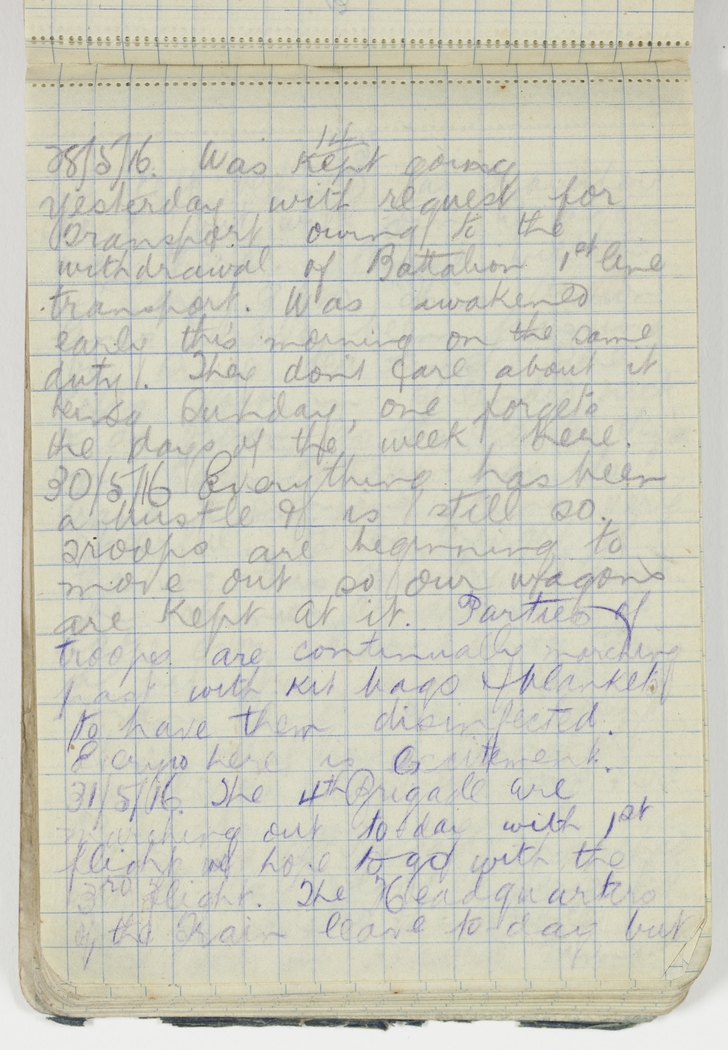 14
28/5/16. Was kept going
yesterday with request for
Transport owing to the
withdrawal of Battalion 1st line
transport. Was awakened
early this morning on the same
duty. They dont care about it
being Sunday, one forgets
the days of the week here.
30/5/16 Everything has been
a bustle & is still so.
Troops are beginning to
move out so our wagons
are kept at it. Parties of
troops are continually marching
past with kit bags & blankets
to have them disinfected.
here is excitement.
31/5/16. The 4th Brigade are
marching out to-day with 1st
flight we hope to go with the
3rd flight. The Headquarters
of the Train leave to-day but